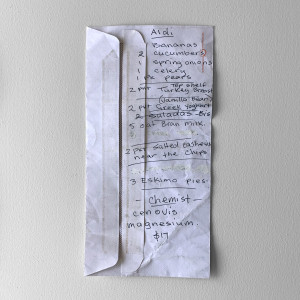 Aldi
Bananas
2 cucumbers
1 spring onions
1 celery
1 pears
Top shelf
2 Turkey Breast
(Vanilla Bean)
2 Greek Yoghurt
2 Saladas
5 oat Bran Milk
2 salted cashews
near the chips
3 Eskimo pies
- chemist -
cenovis
magnesium.
$17